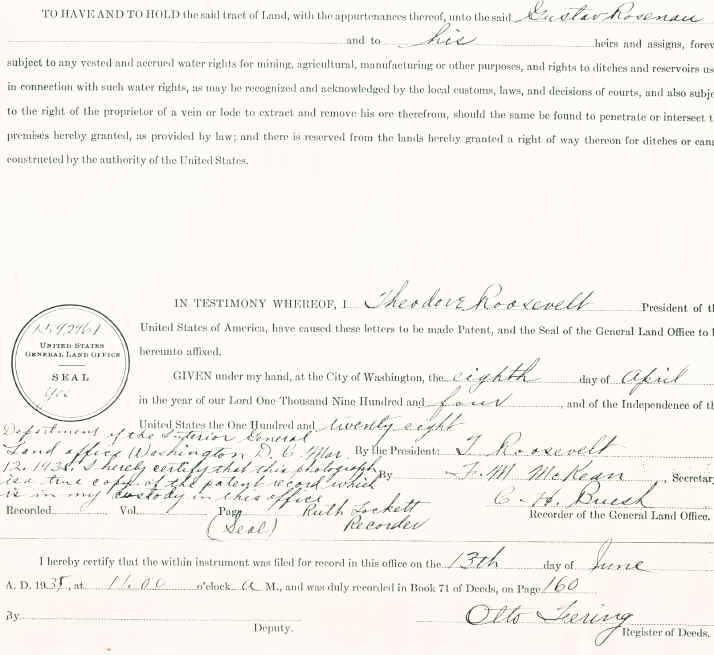 TO HAVE AND TO HOLD the said tract of Land, with the appurtenances thereof, unto the said Gustav Rosenau
and to his heirs and assigns, forev
subject to any vested and accrued water rights for mining, agricultural, manufacturing or other purposes, and rights to ditches and reservoirs us
in connection with such water rights, as may be recognized and acknowledged by the local customs, laws, and decisions of courts, and also subje
to the right of the proprietor of a vein or lode to extract and remove his ore therefrom, should the same be found to penetrate or intersect t
premises hereby granted, as provided by law; and there is reserved from the lands hereby granted a right of way thereon for ditches or cana
constructed by the authority of the United States.
IN TESTIMONY WHEREOF, I Theodore Roosevelt President of th
United States of America, have caused these letters to be made Patent, and the Seal of the General Land Office to b
hereunto affixed.
UNITED STATES
GENERAL LAND OFFICE
SEAL
GIVEN under my hand, at the City of Washington, the eighth day of April
in the year of our Lord One Thousand Nine Hundred and four, and of the Independence of th
United States the One Hundred and twenty eight
Department of the Interior General
Land office Washington D. C. Mar.
12, I hereby certify that this photograph
is a true copy of the patent record which
is in my custody in this office
By the President: T Roosevelt
By F. M. McKean, Secretary
C. H. Brush
Recorder of the General Land Office.
Recorded Vol. Page Ruth Lockett
(Seal) Recorder
I hereby certify that the within instrument was filed for record in this office on the 13th day of June
A. D. 1935, at 11.00 o'clock A M., and was duly recorded in Book 71 of Deeds, on Page 160
By Otto
Deputy. Register of Deeds.